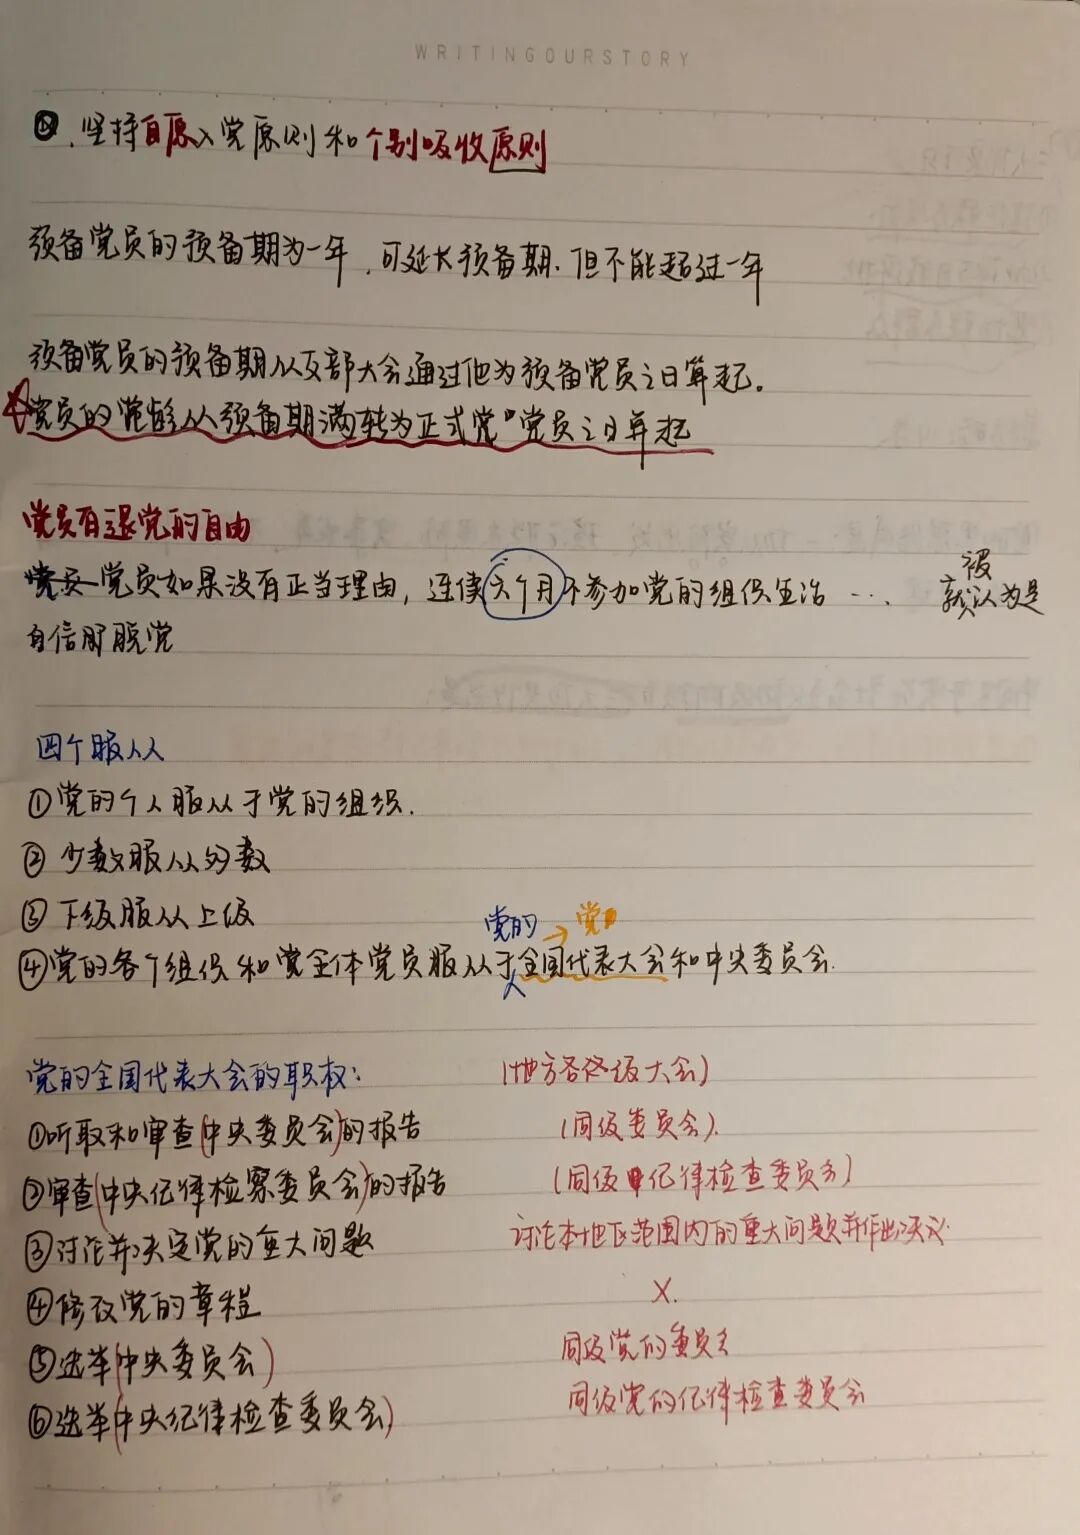 WRITINGOURSTORY
坚持自愿入党原则和个别吸收原则
预备党员的预备期为一年，可延长预备期．但不能超过一年
预备党员的预备期从支部大会通过他为预备党员之日算起。
党员的党龄从预备期满转为正式党"党员之日算起
党员有退党的自由
党员 党员如果没有正当理由，连续六个月不参加党的组织生活 …． 就被认为是
自行脱党
四个服从
①党的个人服从于党的组织．
②少数服从多数
③下级服从上级
党的 → 党
④党的各个组织和党全体党员服从于全国代表大会和中央委员会．
党的全国代表大会的职权： （地方各级大会）
①听取和审查（中央委员会）的报告 （同级委员会）．
②审查（中央纪律检察委员会）的报告 （同级纪律检查委员会）
③讨论并决定党的重大问题 讨论本地区范围内的重大问题并作出决议．
④修改党的章程 X．
⑤选举（中央委员会） 同级党的委员会
⑥选举（中央纪律检查委员会） 同级党的纪律检查委员会